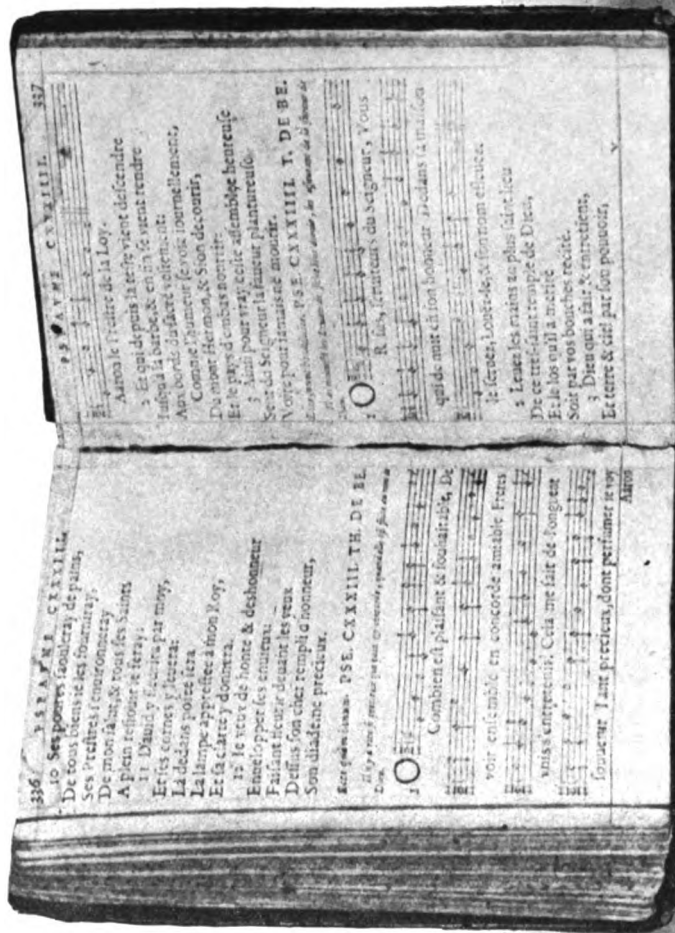 336 PSEAUME CXXXIII.
10 Ses poures saouleray de pains,
De tous biens ie les fourniray,
Ses Prestres i'enuironneray
De mon salut, & tous ses Saints
A plein resiouir ie feray:
11 Dauid y fleurira par moy,
Et ses cornes y leuera:
La dedans posee sera
La lampe apprestee à mon Roy,
Et sa clarté y donnera.
12 Ie veux de honte & deshonneur
Enuelopper ses enuieux:
Faisant fleurir deuant les yeux
Dessus son chef rempli d'honneur,
Son diademe precieux.
PSE. CXXXIII. TH. DE BE.
1 O Combien est plaisant & souhaitable, De
voir ensemble en concorde amiable Freres
vnis s'entretenir. Cela me fait de l'onguent
souuenir Tant precieux, dont perfumer ie voy
Aaron
PSEAUME CXXXIIII. 337
Aaron le Prestre de la Loy.
2 Et qui depuis la teste vient descendre
Iusqu'à la barbe, & en fin se vient rendre
Aux bords du sacré vestement:
Comme l'humeur se voit iournellement,
Du mont Hermon, & Sion decourir,
Et le pays d'embas nourrir.
3 Ainsi pour vray ceste assemblee heureuse
Sent du Seigneur la faueur plantureuse,
Voire pour iamais ne mourir.
PSE. CXXXIIII. T. DE BE.
1 O R sus, seruiteurs du Seigneur, Vous
qui de nuit en son honneur Dedans sa maison
le seruez, Louez-le, & son nom esleuez.
2 Leuez les mains au plus saint lieu
De ce tres-saint temple de Dieu,
Et le los qu'il a merité
Soit par vos bouches recité.
3 Dieu qui a fait, & entretient,
Et terre & ciel par son pouuoir,